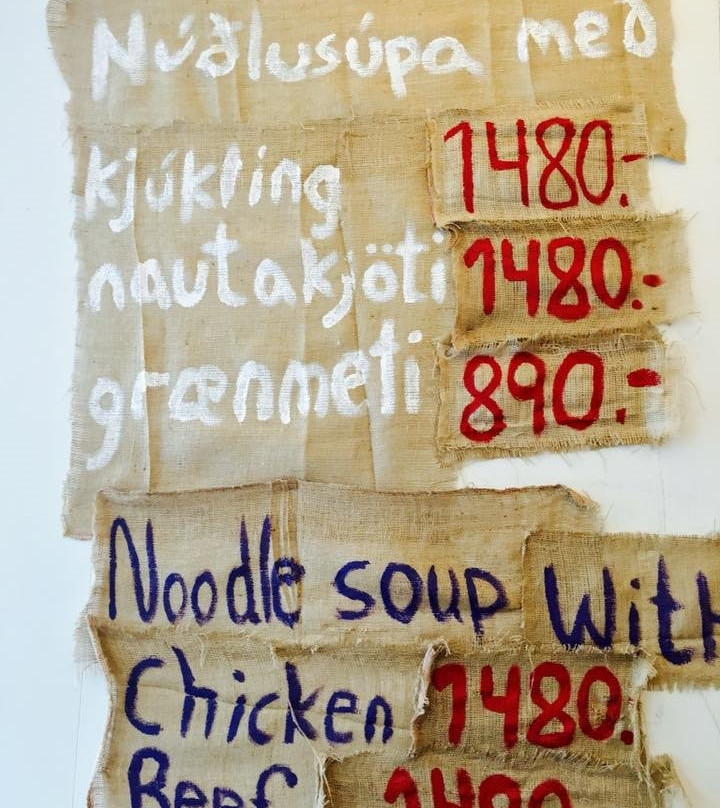 Núðlusúpa með
kjúkling 1480.-
nautakjöti 1480.-
grænmeti 890.-
Noodle soup With
Chicken 1480.
Beef 1480.